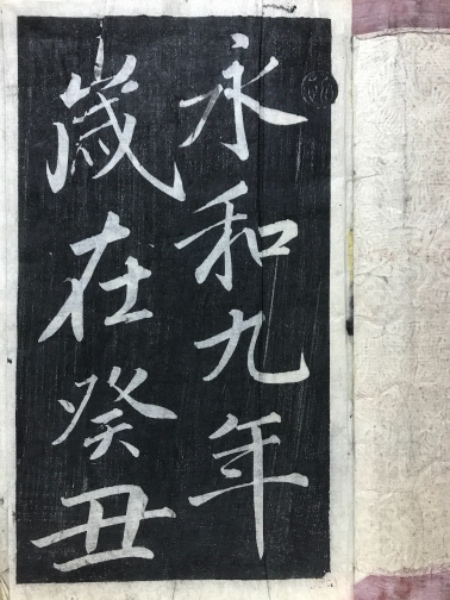 永和九年
歳在癸丑